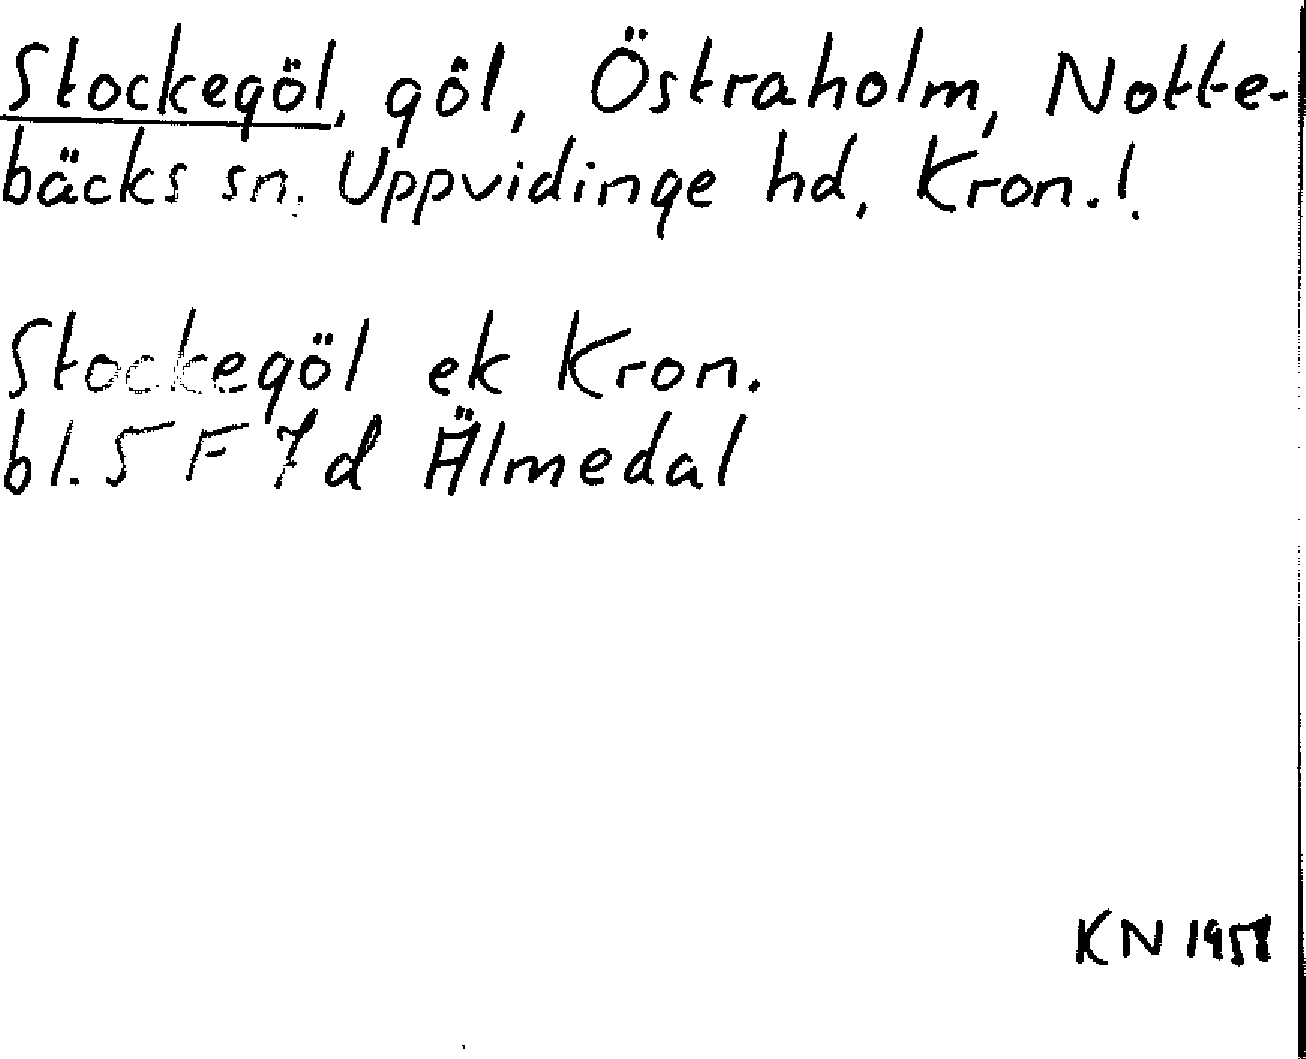 Stockegöl, göl, Östraholm, Notte-
bäcks sn. Uppvidinge hd, Kron.!
Stockegöl ek Kron.
bl. 5 F 7d Älmedal
KN